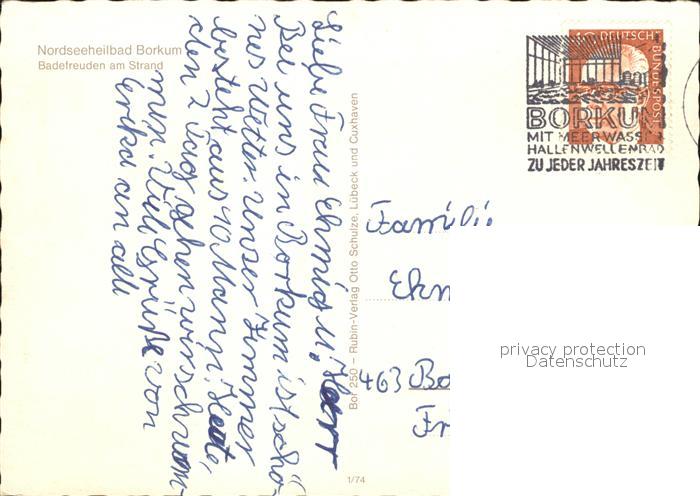 Nordseeheilbad Borkum
Badefreuden am Strand
Liebe Frau Ehmig u. Herr
Bei uns in Borkum ist schö-
nes Wetter. Unser Zimmer
besteht aus 10 Mann. Heute,
den 2 Tag gehen wir schwim-
men. Viele Grüße von
Erika an alle
Bor 250 – Rubin-Verlag Otto Schulze, Lübeck und Cuxhaven
1/74
DEUTSCHE
BUNDESPOST
BORKUM
MIT MEERWASSER
HALLENWELLENBAD
ZU JEDER JAHRESZEIT
Famili
Ehm
463 Bo
Fr
privacy protection
Datenschutz